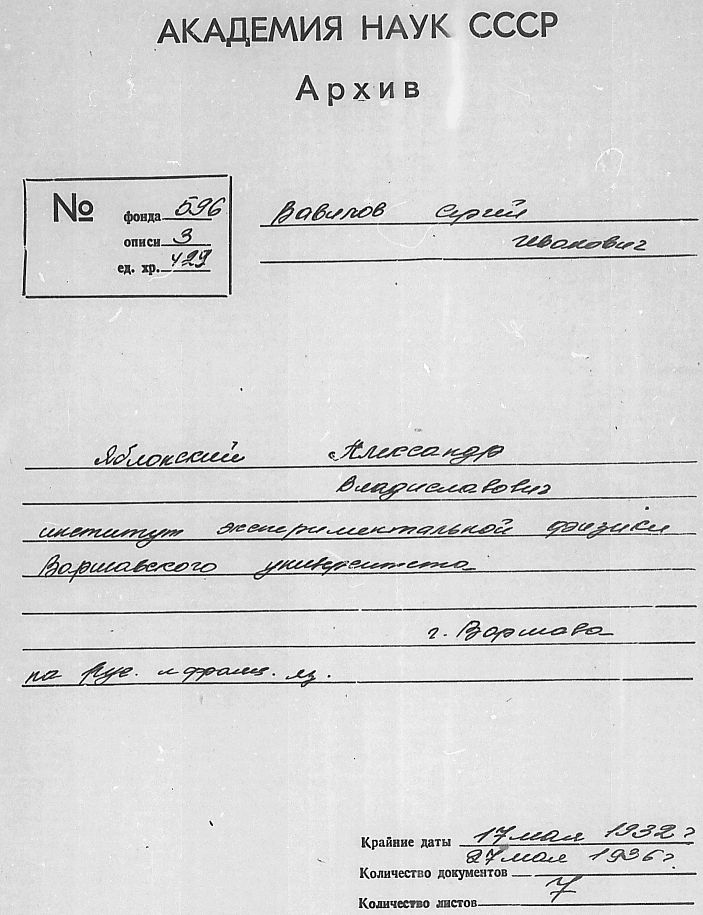 АКАДЕМИЯ НАУК СССР
Архив
№
фонда 596
описи 3
ед. хр. 429
Вавилов Сергей
Иванович
Яблонский Александр
Владиславович
институт экспериментальной физики
Варшавского университета
г. Варшава
на рус. и франц. яз.
Крайние даты 17 мая 1932 г
27 мая 1936 г.
Количество документов
Количество листов 7